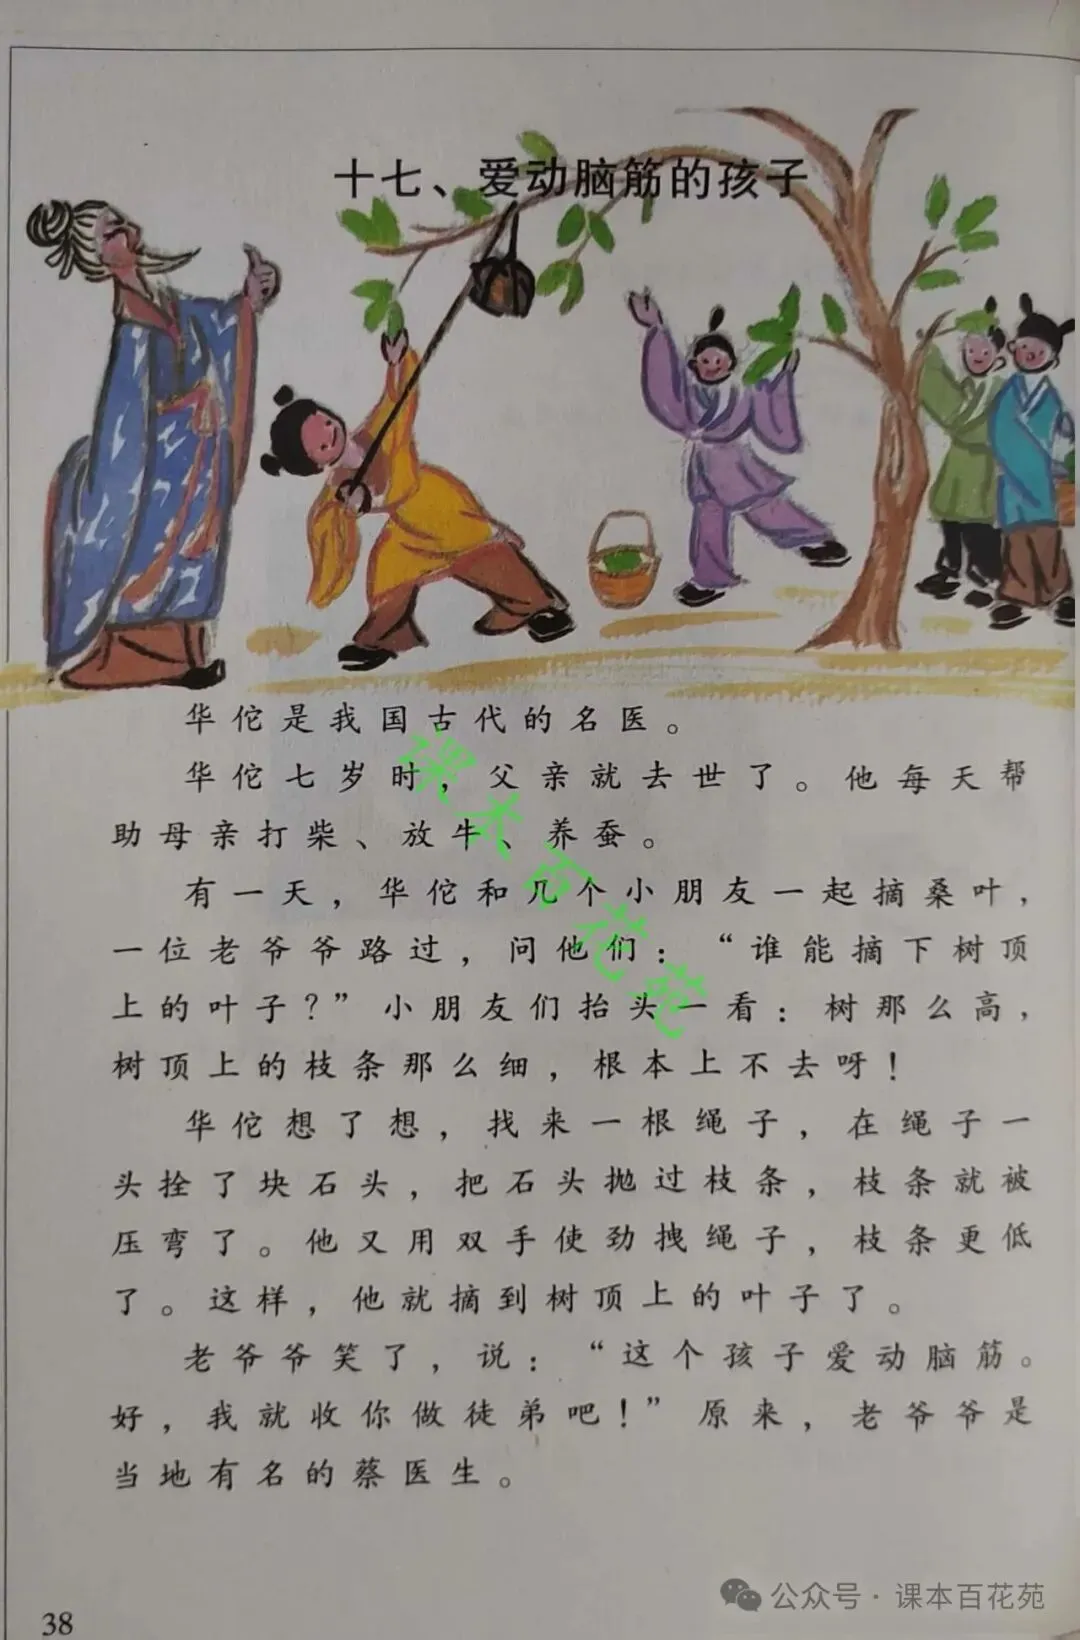 十七、爱动脑筋的孩子
华佗是我国古代的名医。
华佗七岁时，父亲就去世了。他每天帮
助母亲打柴、放牛、养蚕。
有一天，华佗和几个小朋友一起摘桑叶，
一位老爷爷路过，问他们：“谁能摘下树顶
上的叶子？”小朋友们抬头一看：树那么高，
树顶上的枝条那么细，根本上不去呀！
华佗想了想，找来一根绳子，在绳子一
头拴了块石头，把石头抛过枝条，枝条就被
压弯了。他又用双手使劲拽绳子，枝条更低
了。这样，他就摘到树顶上的叶子了。
老爷爷笑了，说：“这个孩子爱动脑筋。
好，我就收你做徒弟吧！”原来，老爷爷是
当地有名的蔡医生。
课本百花苑
公众号·课本百花苑
38